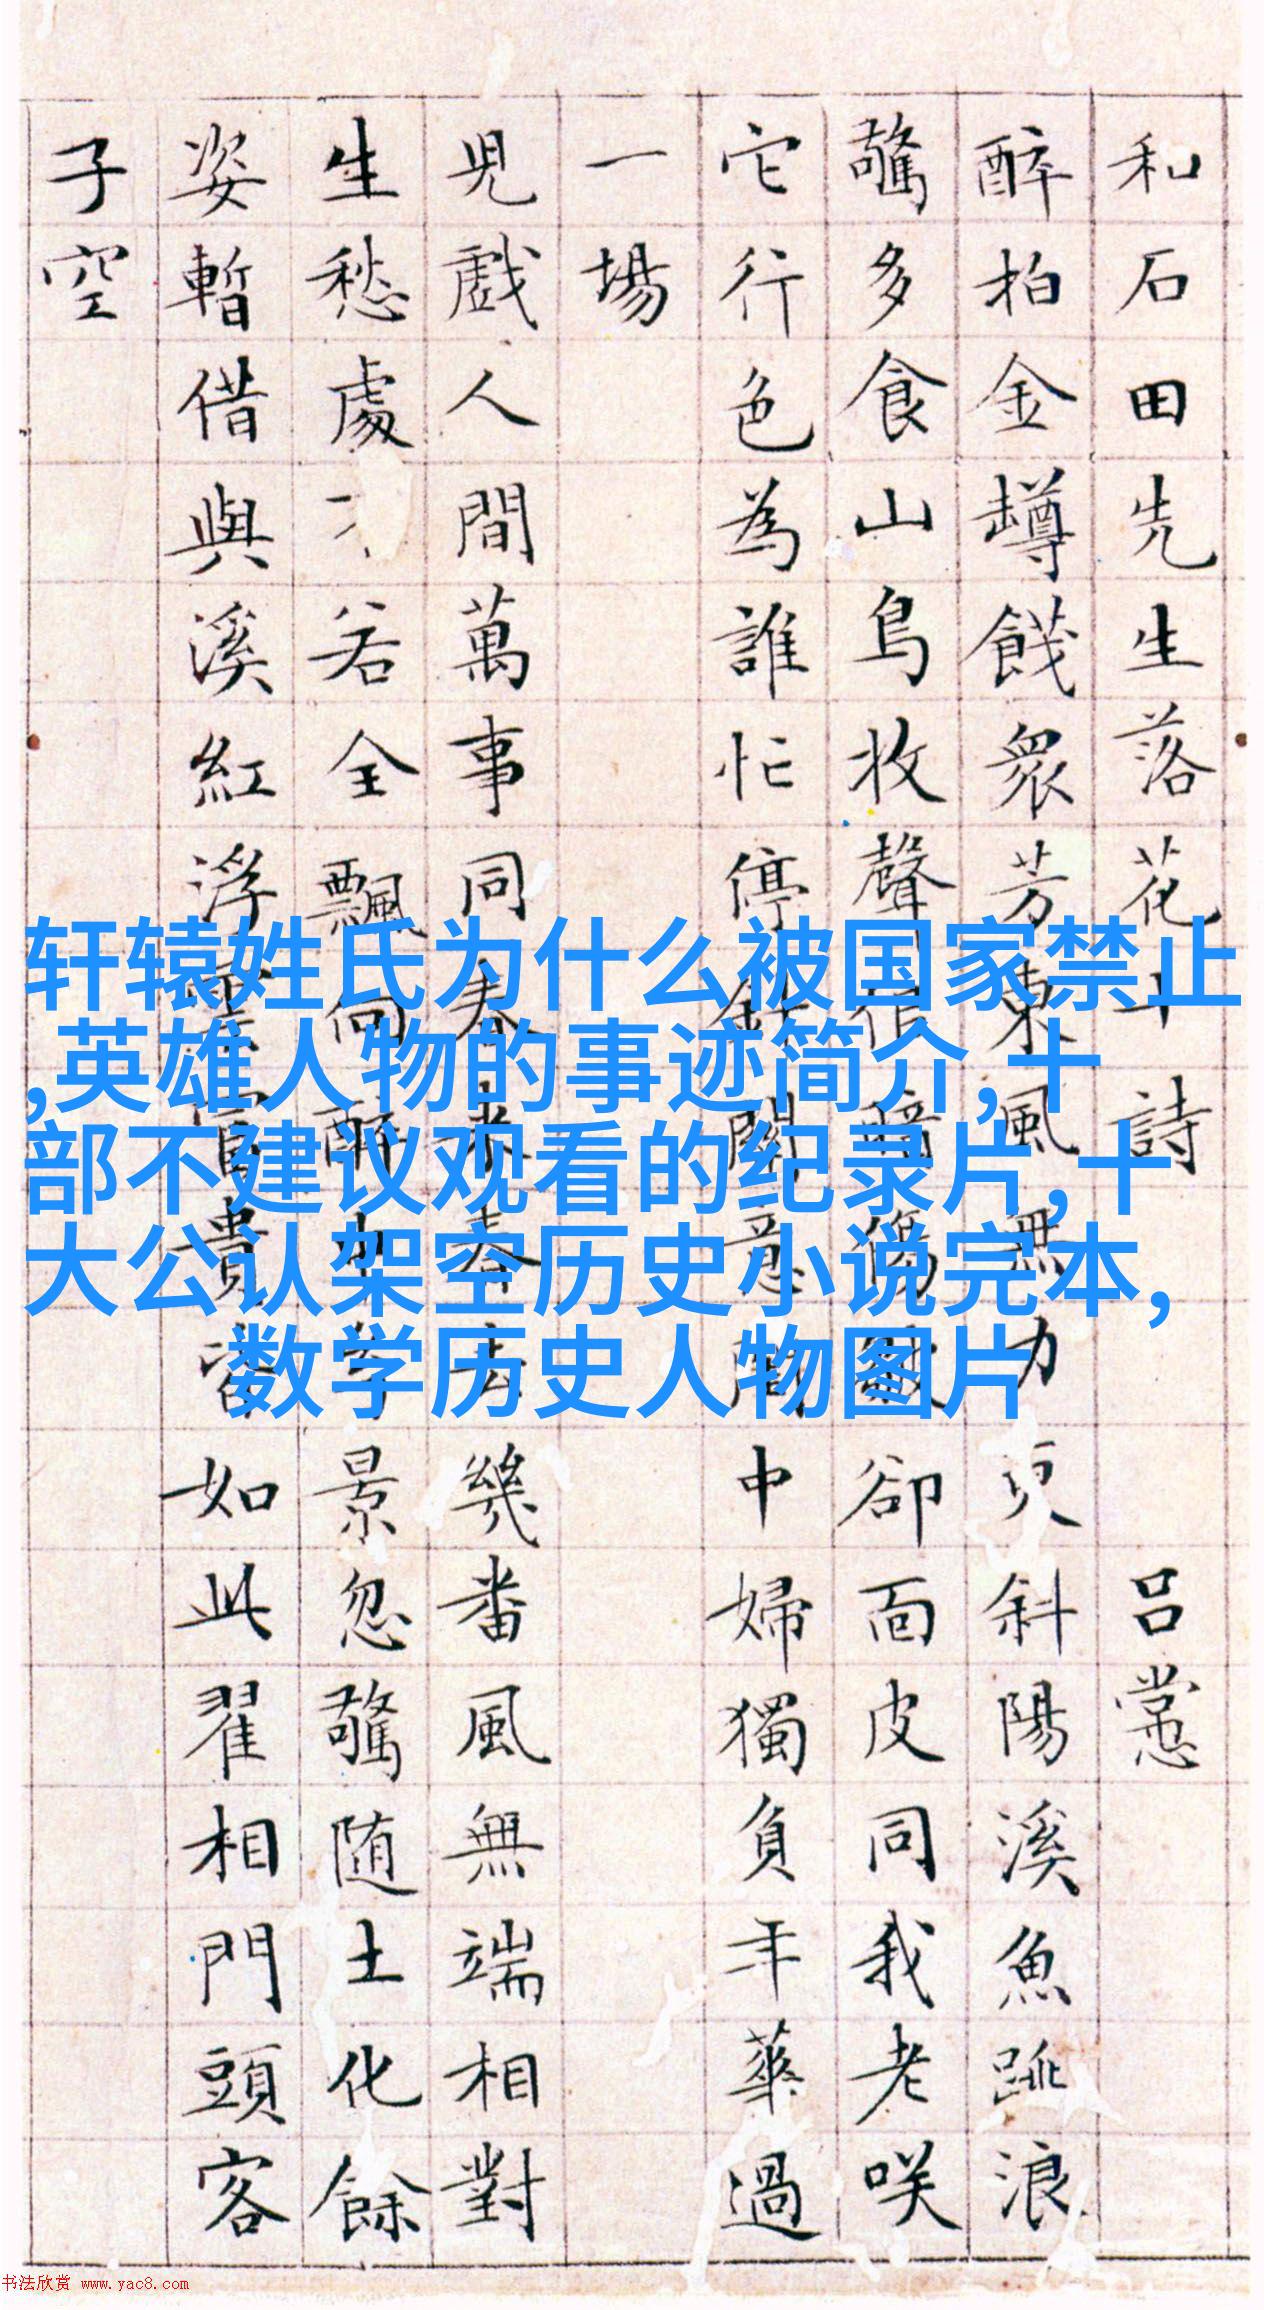 和石田先生落花十詩 呂㦂
醉拍金罇餞衆芳東風無力更斜陽溪魚跳浪
驚多食山鳥收聲作暗傷卻面皮同我老咲
它行色為誰忙停針意中婦獨負年華過
一場
兒戲人間萬事同春來春去幾番風無端相對
生愁處若全飄向醉中景忽驚随土化餘
姿暫借與溪紅浮雲富貴當如此翟相門頭客
子空
轩辕姓氏为什么被国家禁止
,英雄人物的事迹简介,十
部不建议观看的纪录片,十
大公认架空历史小说完本,
数学历史人物图片
书法欣赏 www.yac8.com